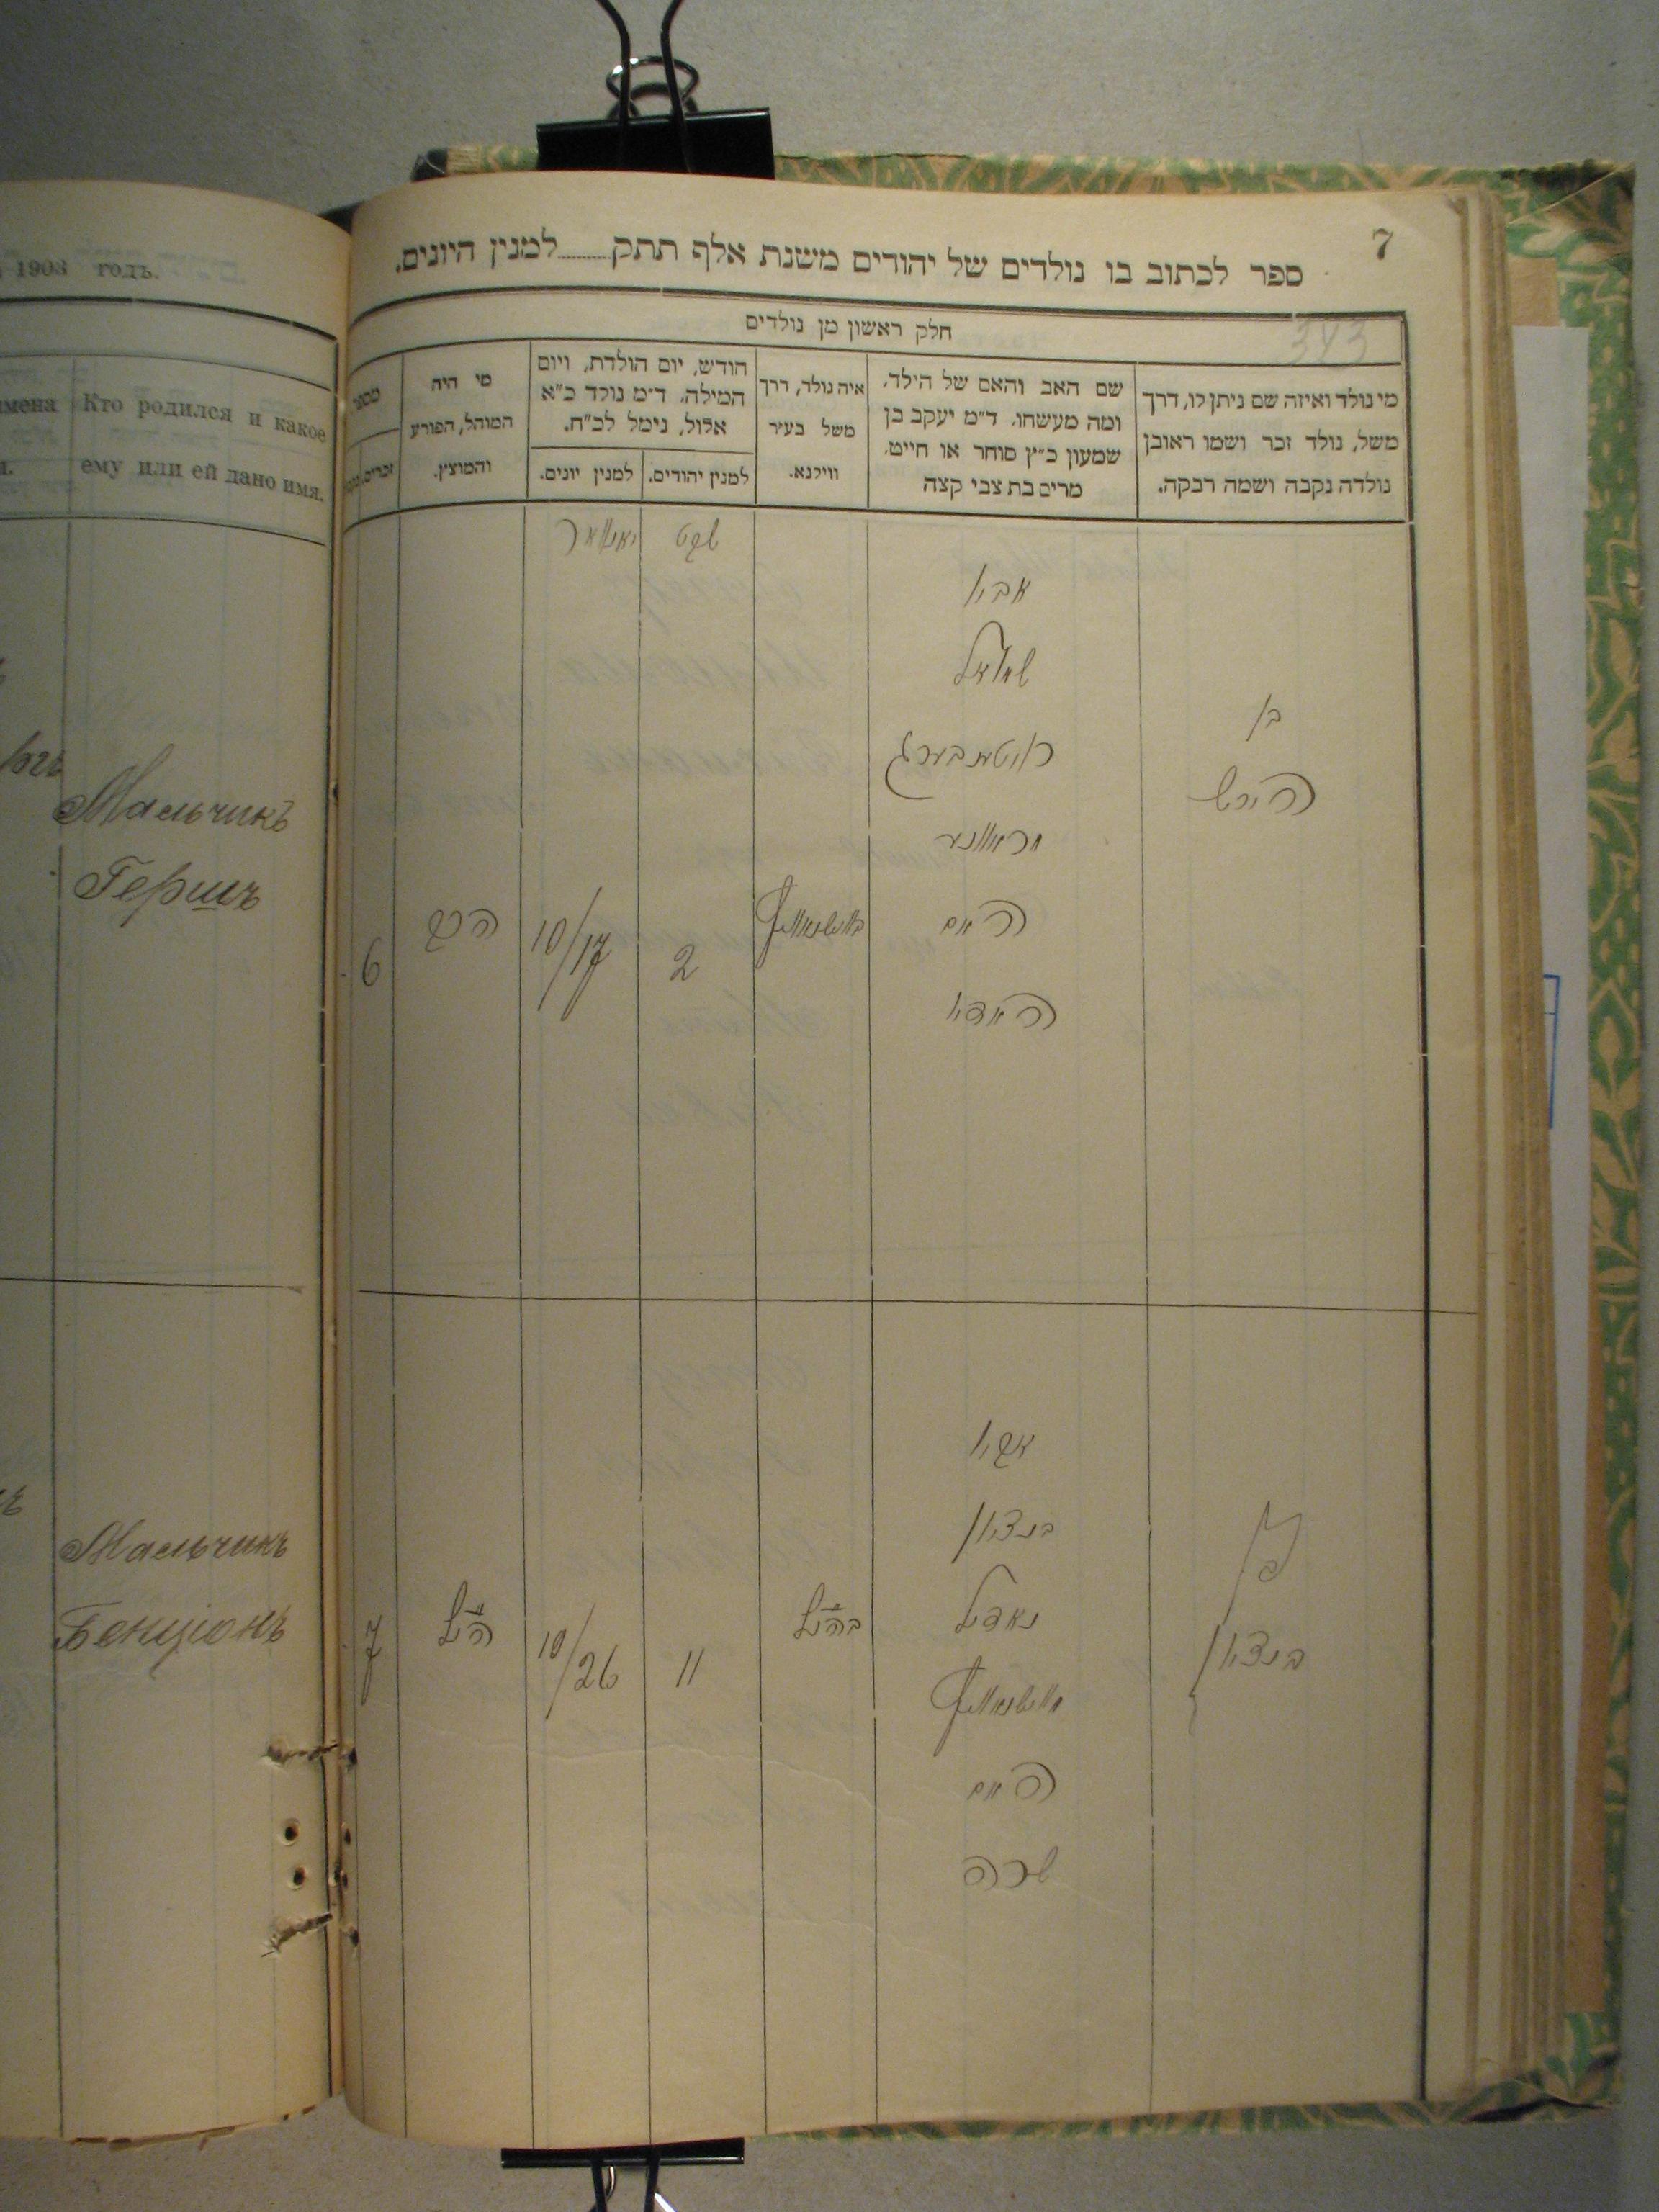 1903 годъ.
Кто родился и какое
ему или ей дано имя.
Мальчикъ
Гершъ
Мальчикъ
Бенціонъ
7
ספר לכתוב בו נולדים של יהודים משנת אלף תתק........למנין היונים.
343
חלק ראשון מן נולדים
מי נולד ואיזה שם ניתן לו, דרך
משל, נולד זכר ושמו ראובן
נולדה נקבה ושמה רבקה.
שם האב והאם של הילד,
ומה מעשהו. ד״מ יעקב בן
שמעון כ״ץ סוחר או חייט,
מרים בת צבי קצה
איה נולד, דרך
משל בעיר
ווילנא.
חודש, יום הולדת, ויום
המילה. ד״מ נולד כ״א
אלול, נימל לכ״ח.
למנין יהודים.
למנין יונים.
מי היה
המוהל, הפורע
והמוצץ.
מספר
זכרים
שבט
יאנואר
בן
הירש
אביו
שמואל
ראטענבערג
האם
2
10/17
6
בן
בנציון
אביו
בנציון
האם
שרה
11
10/26
הנ״ל
7